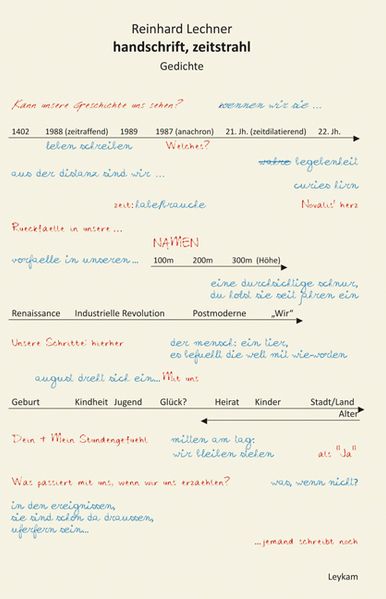 Reinhard Lechner
handschrift, zeitstrahl
Gedichte
Kann unsere Geschichte uns sehen? kennen wir sie ...
1402 1988 (zeitraffend) 1989 1987 (anachron) 21. Jh. (zeitdilatierend) 22. Jh.
leben schreiben Welches?
wahre begebenheit
aus der distanz sind wir ...
curies hirn
zeit: habeßrauche Novalis' herz
Rueckfaelle in unsere ...
NAMEN
vorfaelle in unseren... 100m 200m 300m (Höhe)
eine durchsichtige schnur,
du holst sie seit jahren ein
Renaissance Industrielle Revolution Postmoderne „Wir“
Unsere Schritte: hierher der mensch: ein tier,
es befuellt die welt mit wie-worten
august dreht sich ein... Mit uns
Geburt Kindheit Jugend Glück? Heirat Kinder Stadt/Land
Alter
Dein + Mein Stundengefuehl mitten am tag:
wir bleiben stehen als "Ja"
Was passiert mit uns, wenn wir uns erzaehlen? was, wenn nicht?
in den ereignissen,
sie sind schon da draussen,
uferfern sein...
...jemand schreibt noch
Leykam